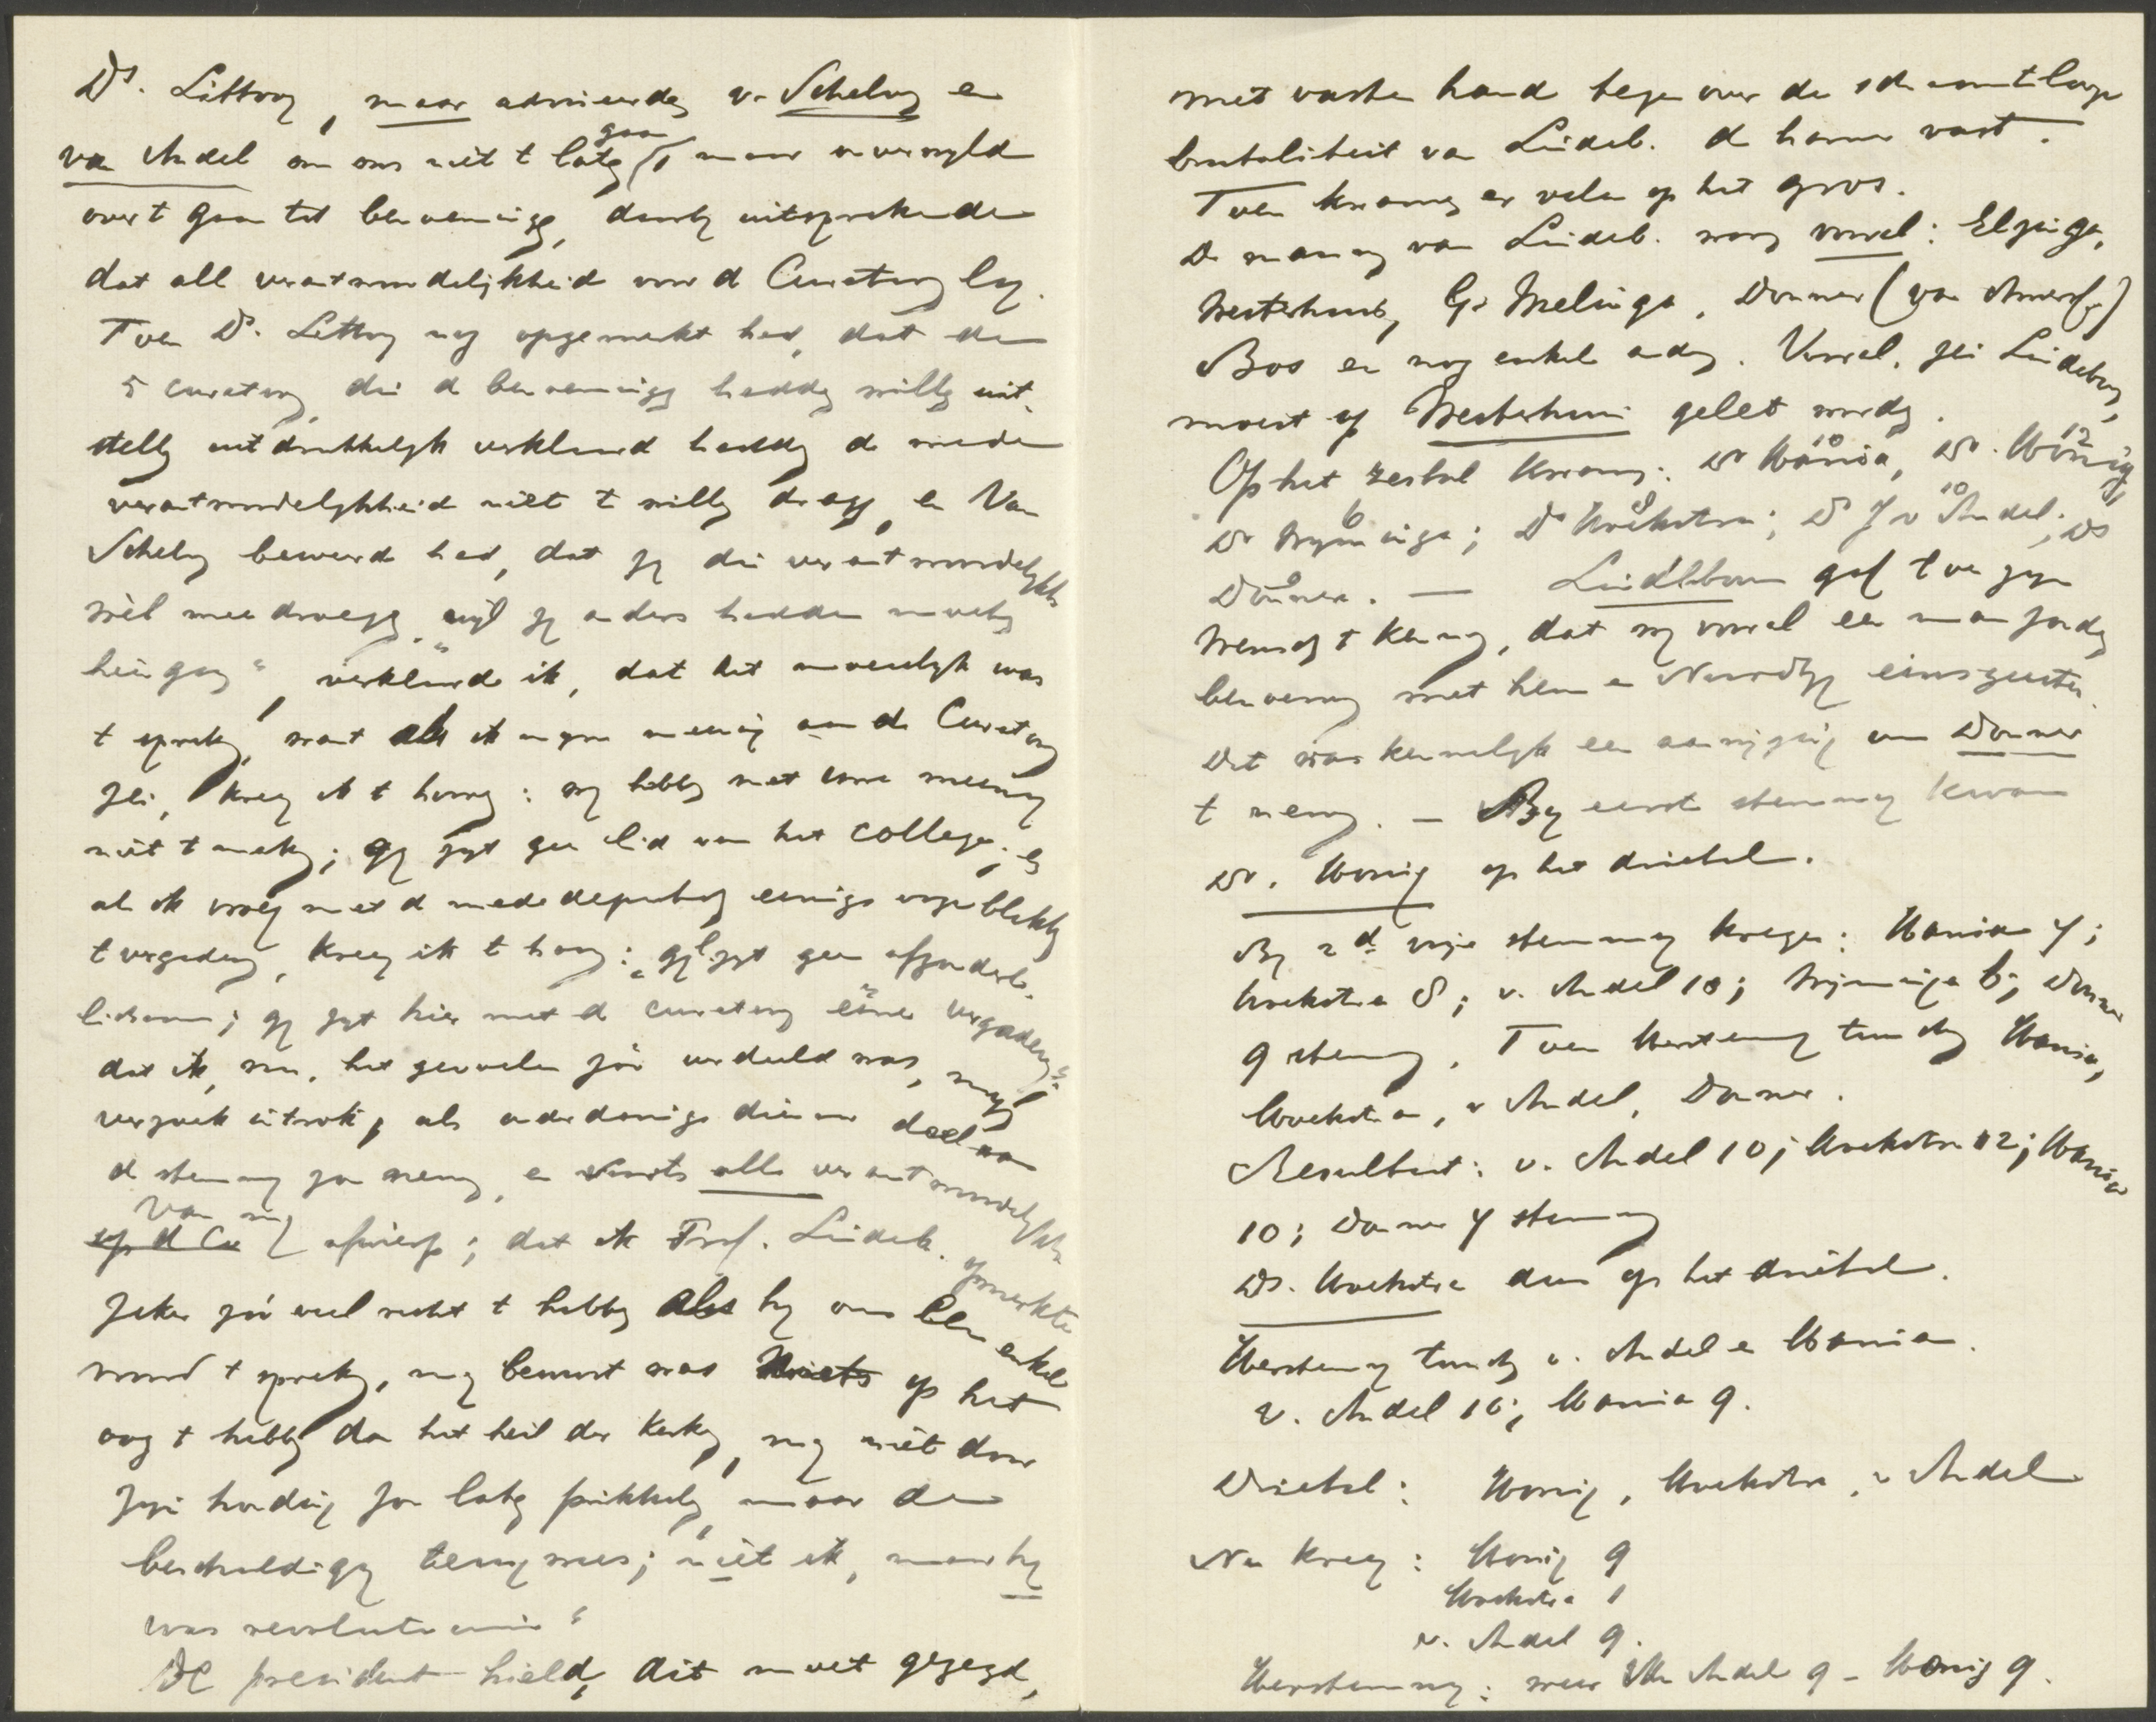 Ds. Littooy, maar adviseerden v. Schelven en
van Andel om ons niet t laten gaan, maar onverwyld
over t gaan tot benoeming, daarby uitsprekende
dat all verantwoordelijkheid voor d Curatoren lag.
Toen Ds. Littooy nog opgemerkt had, dat de
5 curatoren, die d benoemingen hadden willen uit-
stellen uitdrukkelyk verklaard hadden de mede
verantwoordelykheid niet t willen dragen, en Van
Schelven beweerd had, dat zy die verantwoordelykh.
wèl meedroegen, "wyl zy anders hadden moeten
heengaan", verklaarde ik, dat het moeielyk was
t spreken, want als ik myn meening aan d Curatoren
zei, kreeg ik t hooren: wy hebben met uwe meening
niet t maken; gy zyt geen lid van het college; en
als ik vroeg met d mededeputaten eenige oogenblikken
t vergaderen, kreeg ik t hooren: "gyl. zyt geen afzonderl.
lichaam; gy zyt hier met d curatoren eéne vergadering";
dat ik, nu het gevoelen zóó verdeeld was, myn
verzoek introk, als onderdanige dienaar deel aan
d stemming zou nemen, en voorts alle verantwoordelykh.
op d Cu van my afwierp; dat ik Prof. Lindeb. opmerkte
zeker zóó veel recht t hebben als hy om een enkel
woord t spreken, my bewust was niets op het
oog t hebben dan het heil der Kerken, my niet door
zyn houding zou laten prikkelen, maar de
beschuldiging terugwees; niet ik, maar hy
was revolutionair"
De president hield, dit moet gezegd,
met vaste hand tegenover de schaamtelooze
brutaliteit van Lindeb. d hamer vast.
Toen kwamen er velen op het gros.
De mannen van Lindeb. waren vooral: Elzinga,
Westerhuis, G. Wielenga, Donner (van Amersf.)
Bos en nog enkele anderen. Vooral, zei Lindeboom,
moest op Westerhuis gelet worden.
Op het zestal kwamen: Dr Wania 10, Dr. Honig 12,
Dr Wyminga 6; Ds Hoekstra 8; Ds J v Andel 10; Ds
Donner 9. — Lindeboom gaf toen zyn
wensch t kennen, dat wy vooral een man zouden
benoemen met hem en Noordtzy eensgeestes.
Dat was kennelyk een aanwyzing om Donner
t nemen. — By eerste stemming kwam
Dr. Honig op het drietal.
By 2de vrije stemming kregen: Wania 7;
Hoekstra 8; v. Andel 10; Wyminga 6; Donner
9 stemmen. Toen herstemming tusschen Wania,
Hoekstra, v Andel, Donner.
Resultaat: v. Andel 10; Hoekstra 12; Wania
10; Donner 7 stemmen
Ds. Hoekstra dus op het drietal.
Herstemming tusschen v. Andel en Wania.
v. Andel 10; Wania 9.
Drietal: Honig, Hoekstra, v Andel
Nu kreeg: Honig 9
Hoekstra 1
v. Andel 9.
Herstemming: weer v Andel 9 - Honig 9.